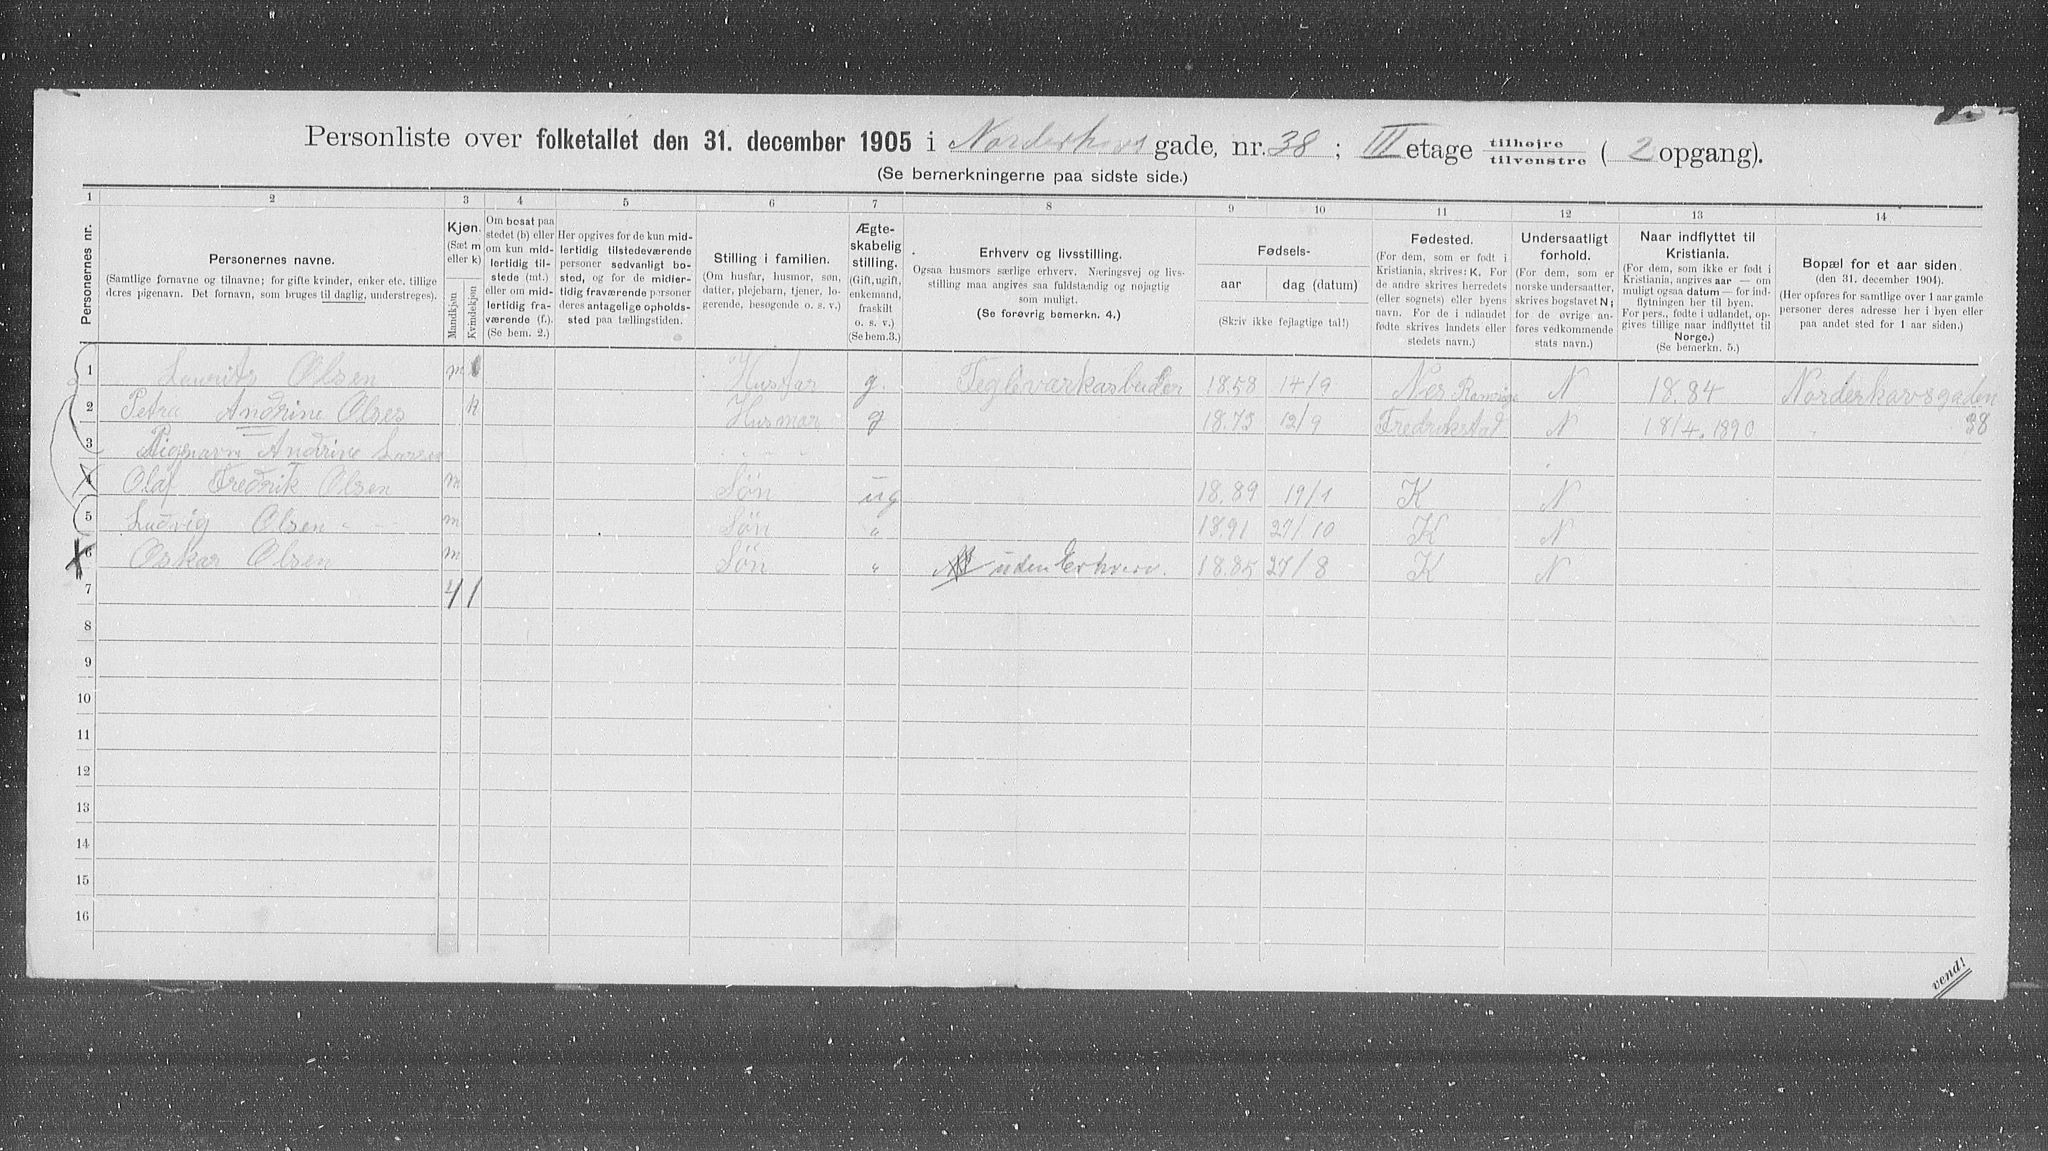 Personliste over folketallet den 31. december 1905 i Norderhovs gade, nr. 38 ; III etage tilhøjre tilvenstre ( 2 opgang).
(Se bemerkningerne paa sidste side.)
1 2 3 4 5 6 7 8 9 10 11 12 13 14
Personernes nr.
Personernes navne.
(Samtlige fornavne og tilnavne; for gifte kvinder, enker etc. tillige
deres pigenavn. Det fornavn, som bruges til daglig, understreges).
Kjøn.
(Sæt m
eller k)
Mandkjøn
Kvindekjøn
Om bosat paa
stedet (b) eller
om kun mid-
lertidig til-
stede (mt.)
eller om mid-
lertidig fra-
værende (f.).
(Se bem. 2.)
Her opgives for de kun mid-
lertidig tilstedeværende
personer sedvanligt bo-
sted, og for de midler-
tidig fraværende personer
deres antagelige opholds-
sted paa tællingstiden.
Stilling i familien.
(Om husfar, husmor, søn,
datter, plejebarn, tjener, lo-
gerende, besøgende o. s. v.)
Ægte-
skabelig
stilling.
(Gift, ugift,
enkemand,
fraskilt
o. s. v.)
(Se bem.3.)
Erhverv og livsstilling.
Ogsaa husmors særlige erhverv. Næringsvej og livs-
stilling maa angives saa fuldstændig og nøjagtig
som muligt.
(Se forøvrig bemerkn. 4.)
Fødsels-
aar dag (datum)
(Skriv ikke fejlagtige tal!)
Fødested.
(For dem, som er født i
Kristiania, skrives: K. For
de andre skrives herredets
(eller sognets) eller byens
navn. For de i udlandet
fødte skrives landets eller
stedets navn.)
Undersaatligt
forhold.
(For dem, som er
norske undersaatter,
skrives bogstavet N;
for de øvrige an-
føres vedkommende
stats navn.)
Naar indflyttet til
Kristiania.
(For dem, som ikke er født i
Kristiania, angives aar — om
muligt ogsaa datum — for ind-
flytningen her til byen.
For pers., fødte i udlandet, op-
gives tillige naar indflyttet til
Norge.)
(Se bemerkn. 5.)
Bopæl for et aar siden.
(den 31. december 1904).
(Her opføres for samtlige over 1 aar gamle
personer deres adresse her i byen eller
paa andet sted for 1 aar siden.)
1 Laurits Olsen m Husfar g. Teglevarkasbeider 1858 14/9 Nes N 1884 Norderhavsgaden
2 Petra Andrine Olses k Husmor g 1873 12/9 Fredrikstad N 18/4. 1890 38
3 Pigenavn Andrine Larsen
4 Olaf Fredrik Olsen m Søn ug 1889 19/1 K N
5 Ludvig Olsen m Søn " 1891 27/10 K N
6 Oskar Olsen m Søn " uden Erhverv. 1885 27/8 K N
7 4 1
8
9
10
11
12
13
14
15
16
vend!